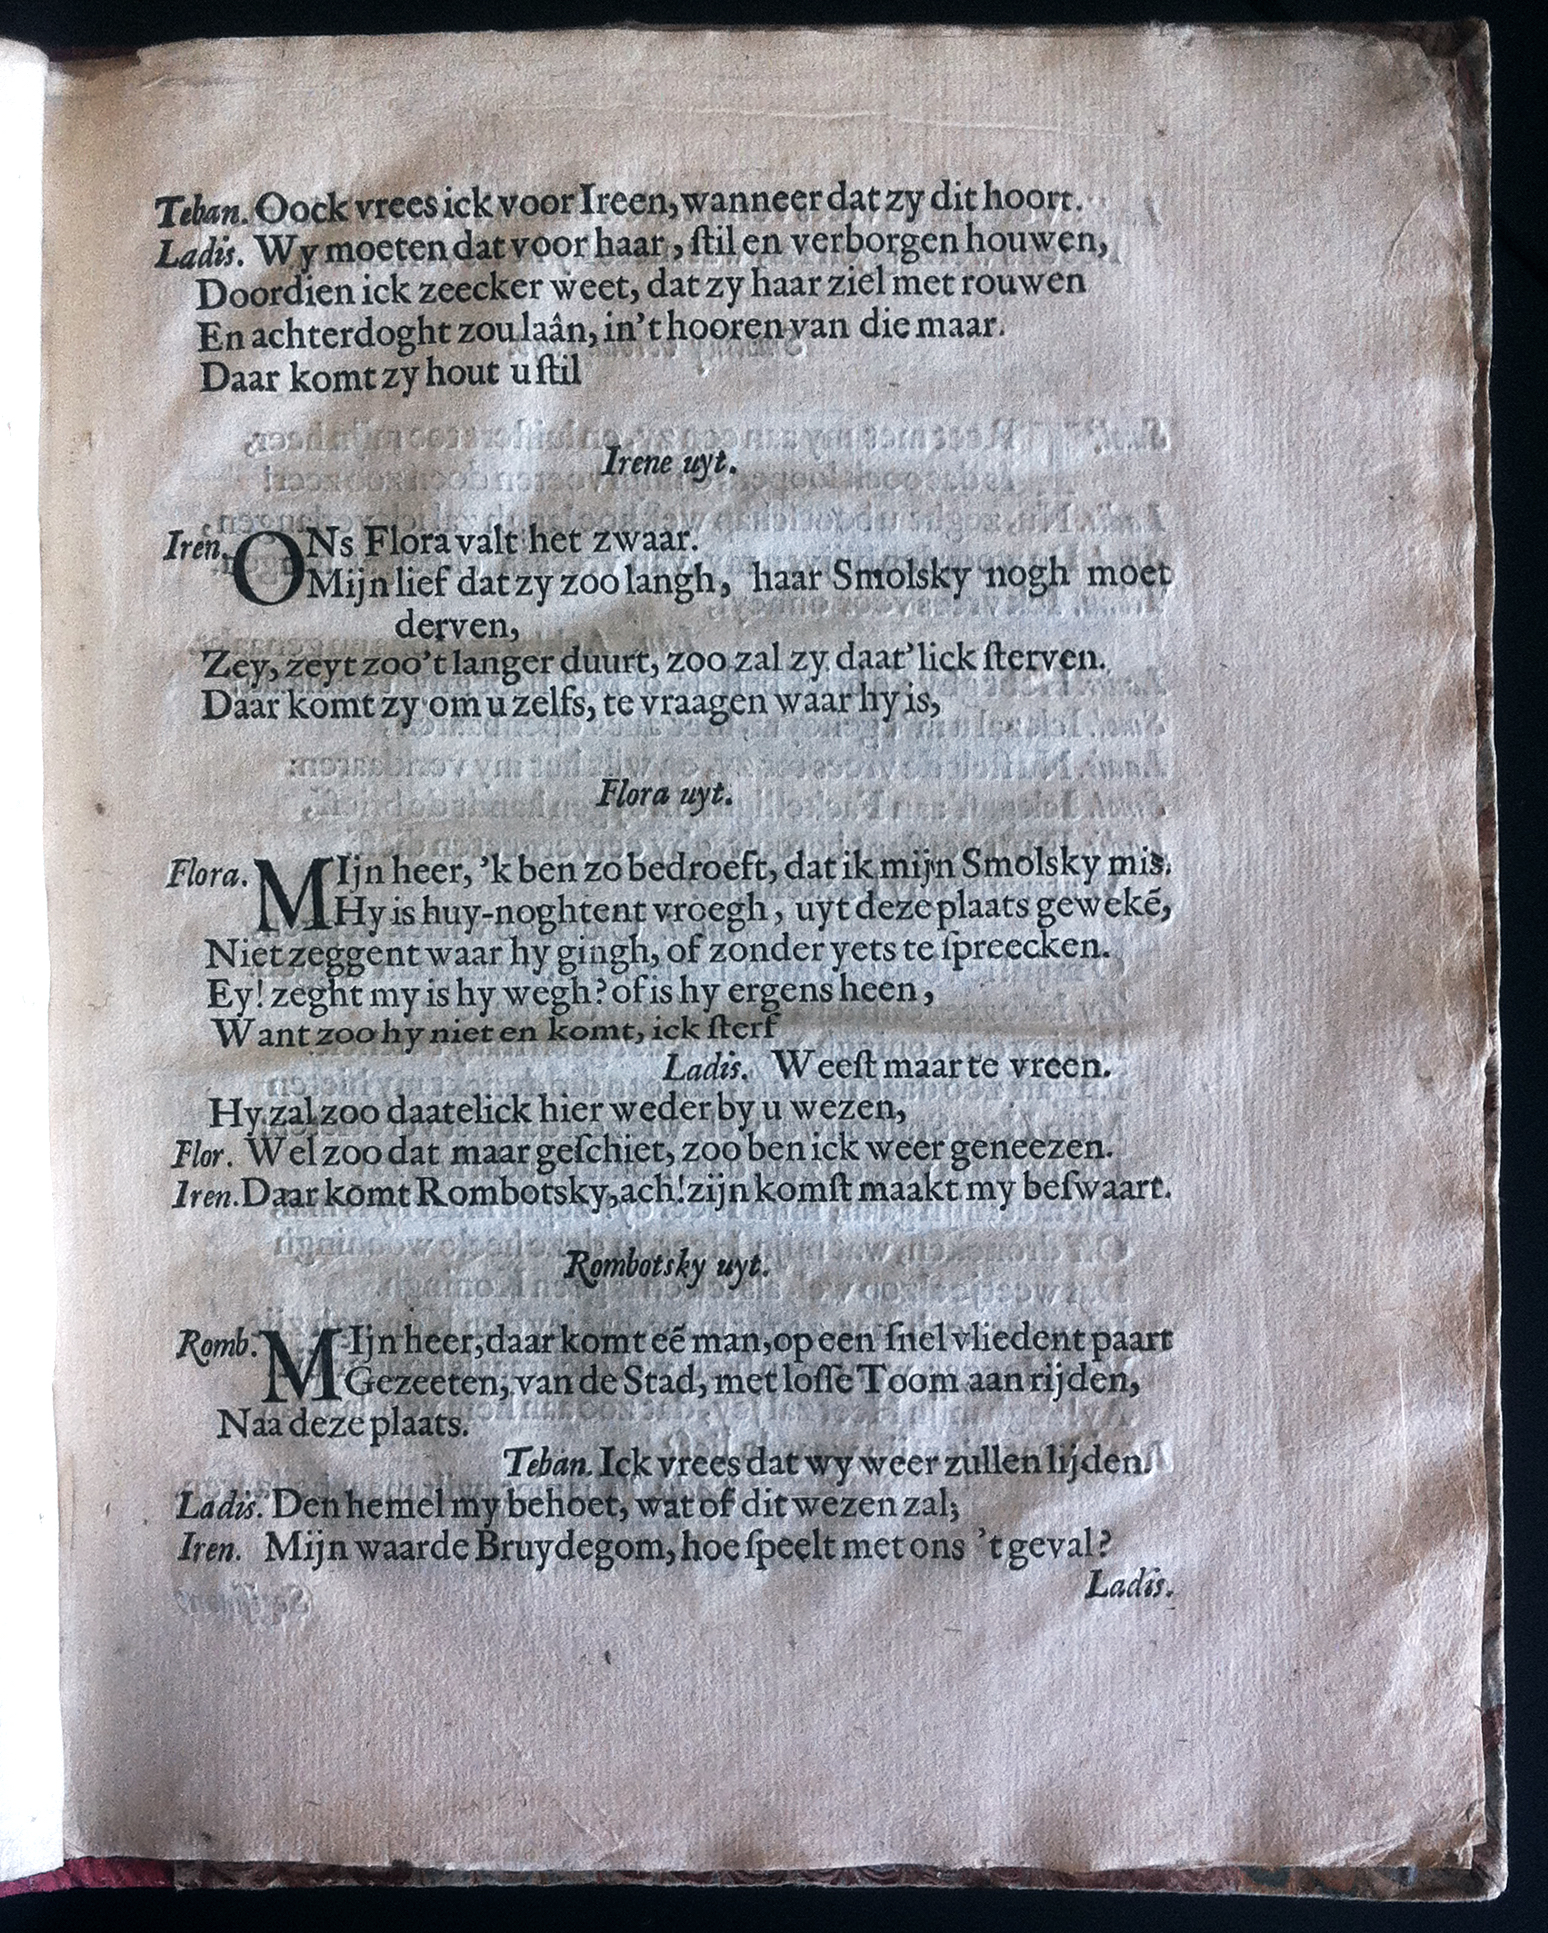 Teban. Oock vrees ick voor Ireen, wanneer dat zy dit hoort.
Ladis. Wy moeten dat voor haar, ſtil en verborgen houwen,
Doordien ick zeecker weet, dat zy haar ziel met rouwen
En achterdoght zou laân, in't hooren van die maar.
Daar komt zy hout u ſtil
Irene uyt.
Iren. ONs Flora valt het zwaar.
Mijn lief dat zy zoo langh, haar Smolsky nogh moet
derven,
Zey, zeyt zoo't langer duurt, zoo zal zy daat'lick ſterven.
Daar komt zy om u zelfs, te vraagen waar hy is,
Flora uyt.
Flora. MIjn heer, 'k ben zo bedroeft, dat ik mijn Smolsky mis.
Hy is huy-noghtent vroegh, uyt deze plaats gewekē,
Niet zeggent waar hy gingh, of zonder yets te ſpreecken.
Ey! zeght my is hy wegh? of is hy ergens heen,
Want zoo hy niet en komt, ick ſterf
Ladis. Weeſt maar te vreen.
Hy zal zoo daatelick hier weder by u wezen,
Flor. Wel zoo dat maar geſchiet, zoo ben ick weer geneezen.
Iren. Daar komt Rombotsky, ach! zijn komſt maakt my beſwaart.
Rombotsky uyt.
Romb. MIjn heer, daar komt eē man, op een ſnel vliedent paart
Gezeeten, van de Stad, met loſſe Toom aan rijden,
Naa deze plaats.
Teban. Ick vrees dat wy weer zullen lijden.
Ladis. Den hemel my behoet, wat of dit wezen zal;
Iren. Mijn waarde Bruydegom, hoe ſpeelt met ons 't geval?
Ladis.